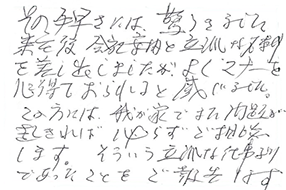 その手早さには、驚きました。
来た後 会社案内と立派な
を差し出しましたが、よくマナーを
心得ておられると感じました。
この方には、我が家でまた問題が
起きれば 必らず ご相談
します。 そういう立派な仕事ぶり
であったことを ご報告します